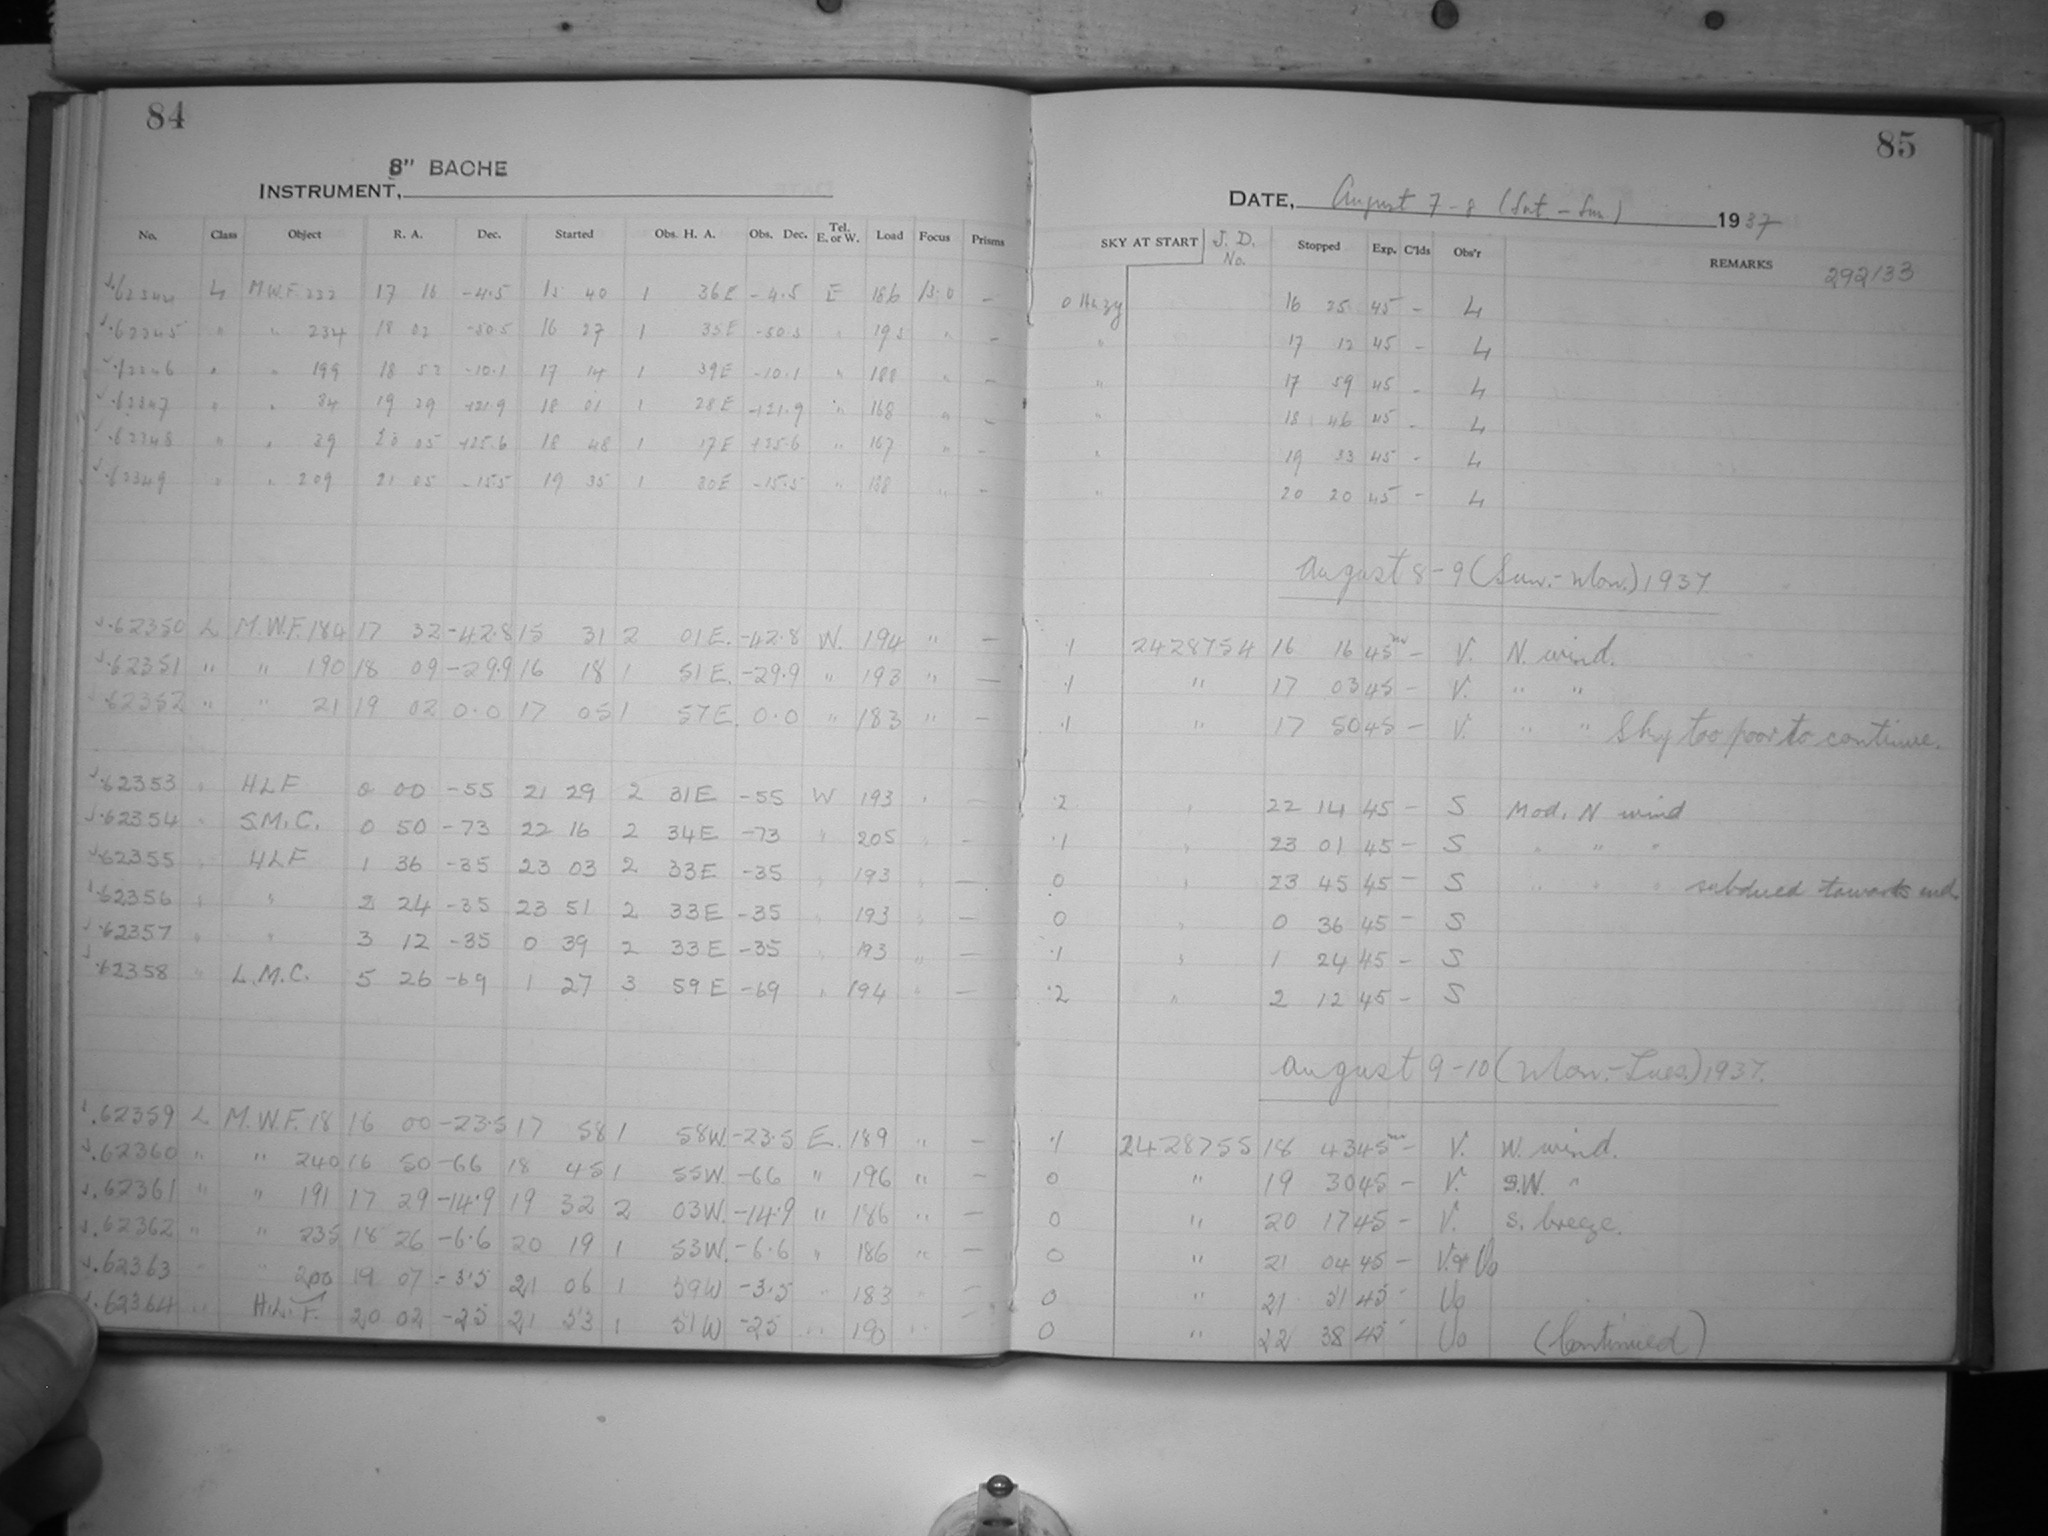 84
8" BACHE
INSTRUMENT,
No. Class Object R. A. Dec. Started Obs. H. A. Obs. Dec. Tel. E. or W. Load Focus Prisms
62344 L M.W.F. 232 17 16 -4.5 15 40 1 36E -4.5 E 186 13.0 -
62345 " " 234 18 02 -50.5 16 27 1 35E -50.5 " 195 " -
62346 " " 199 18 52 -10.1 17 14 1 39E -10.1 " 188 " -
62347 " " 34 19 29 +21.9 18 01 1 28E +21.9 " 168 " -
62348 " " 39 20 05 +25.6 18 48 1 17E +25.6 " 167 " -
62349 " " 209 21 05 -15.5 19 35 1 30E -15.5 " 188 " -
62350 L M.W.F. 184 17 32 -42.8 15 31 2 01E. -42.8 W. 194 " -
62351 " " 190 18 09 -29.9 16 18 1 51E. -29.9 " 193 " -
62352 " " 21 19 02 0.0 17 05 1 57E. 0.0 " 183 " -
62353 " HLF 0 00 -55 21 29 2 31E -55 W 193 " -
62354 " S.M.C. 0 50 -73 22 16 2 34E -73 " 205 " -
62355 " HLF 1 36 -35 23 03 2 33E -35 " 193 " -
62356 " " 2 24 -35 23 51 2 33E -35 " 193 " -
62357 " " 3 12 -35 0 39 2 33E -35 " 193 " -
62358 " L.M.C. 5 26 -69 1 27 3 59E -69 " 194 " -
62359 L M.W.F. 18 16 00 -23.5 17 58 1 58W. -23.5 E. 189 " -
62360 " " 240 16 50 -66 18 45 1 55W. -66 " 196 " -
62361 " " 191 17 29 -14.9 19 32 2 03W. -14.9 " 186 " -
62362 " " 235 18 26 -6.6 20 19 1 53W. -6.6 " 186 " -
62363 " " 200 19 07 -3.5 21 06 1 59W -3.5 " 183 " -
62364 " H.L.F. 20 02 -25 21 53 1 51W -25 " 190 " -
85
DATE, August 7-8 (Sat-Sun) 1937
SKY AT START J. D. No. Stopped Exp. C'lds Obs'r REMARKS 292133
0 Hazy 16 25 45 - L
" 17 12 45 - L
" 17 59 45 - L
" 18 46 45 - L
" 19 33 45 - L
" 20 20 45 - L
August 8-9 (Sun.-Mon.) 1937.
.1 2428754 16 16 45 - V. N. wind.
.1 " 17 03 45 - V. " "
.1 " 17 50 45 - V. " " Sky too poor to continue.
.2 " 22 14 45 - S Mod. N wind
.1 " 23 01 45 - S " " "
0 " 23 45 45 - S " " " subdued towards end.
0 " 0 36 45 - S
.1 " 1 24 45 - S
.2 " 2 12 45 - S
August 9-10 (Mon.-Tues.) 1937.
.1 2428755 18 43 45 - V. W. wind.
0 " 19 30 45 - V. S.W. "
0 " 20 17 45 - V. S. breeze.
0 " 21 04 45 - V. & Uo
0 " 21 51 45 - Uo
0 " 22 38 45 - Uo (Continued)